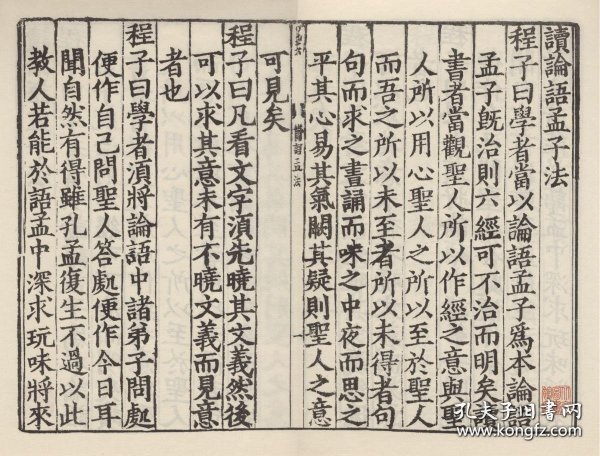 讀論語孟子法
程子曰學者當以論語孟子爲本論語
孟子既治則六經可不治而明矣讀
書者當觀聖人所以作經之意與聖
人所以用心聖人之所以至於聖人
而吾之所以未至者所以未得者句
句而求之晝誦而味之中夜而思之
平其心易其氣闕其疑則聖人之意
可見矣
程子曰凡看文字須先曉其文義然後
可以求其意未有不曉文義而見意
者也
程子曰學者須將論語中諸弟子問處
便作自己問聖人答處便作今日耳
聞自然有得雖孔孟復生不過以此
教人若能於語孟中深求玩味將來
孔夫子旧书网
www.kongfz.com